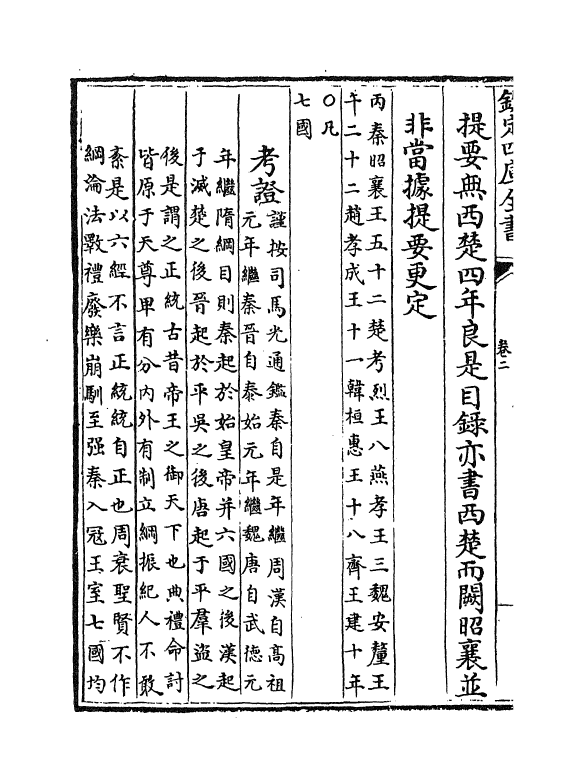 欽定四庫全書
卷二
提要無西楚四年良是目録亦書西楚而闕昭襄並
非當據提要更定
丙秦昭襄王五十二楚考烈王八燕孝王三魏安釐王
午二十二趙孝成王十一韓桓惠王十八齊王建十年
〇凡
七國
考證謹按司馬光通鑑秦自是年繼周漢自高祖
元年繼秦晉自泰始元年繼魏唐自武德元
年繼隋綱目則秦起於始皇帝并六國之後漢起
于滅楚之後晉起於平吳之後唐起于平羣盜之
後是謂之正統古昔帝王之御天下也典禮命討
皆原于天尊卑有分内外有制立綱振紀人不敢
紊是以六經不言正統統自正也周衰聖賢不作
綱淪法斁禮廢樂崩馴至强秦入冦王室七國均